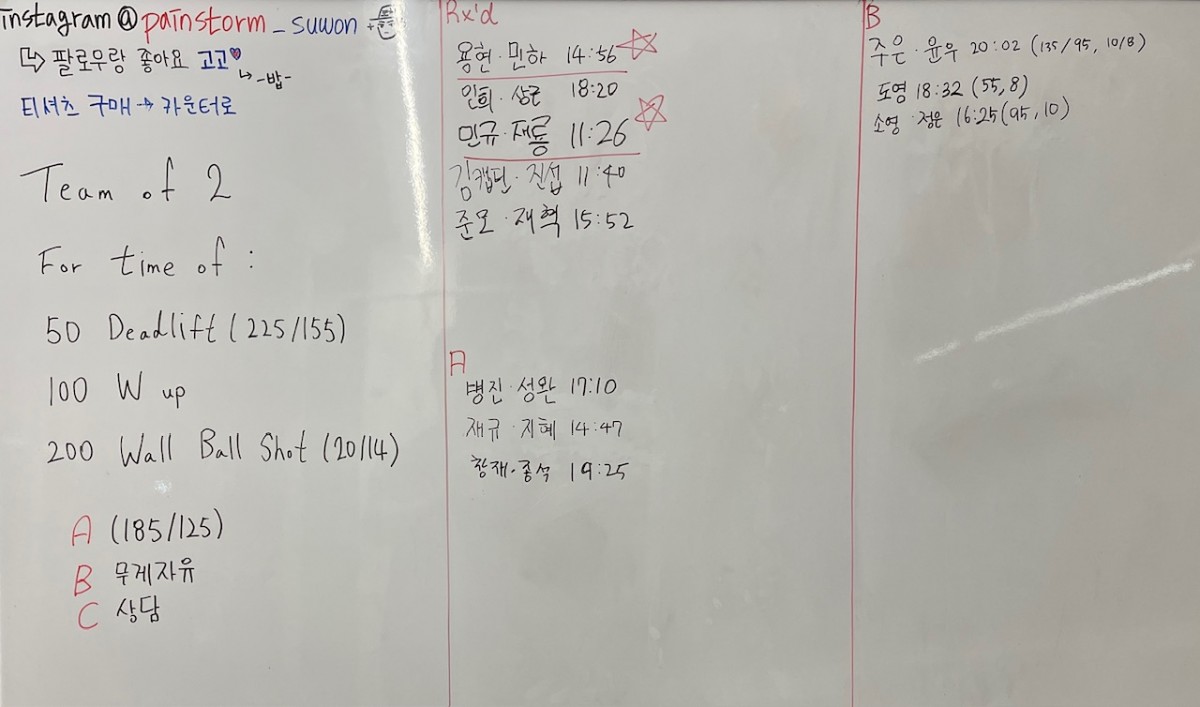 instagram@painstorm_suwon
팔로우랑 좋아요 고고
-밥-
티셔츠 구매→카운터로
Team of 2
For time of :
50 Deadlift (225/155)
100 W up
200 Wall Ball Shot (20/14)
A (185/125)
B 무게자유
C 상담
Rx'd
용현·민하 14:56
인희·상근 18:20
민규·재룡 11:26
김캡틴·진섭 11:40
준모·재혁 15:52
A
병진·성완 17:10
재규·지혜 14:47
창재·종석 19:25
B
주은·윤우 20:02 (135/95, 10/8)
도영 18:32 (55,8)
소영·정은 16:25 (95,10)